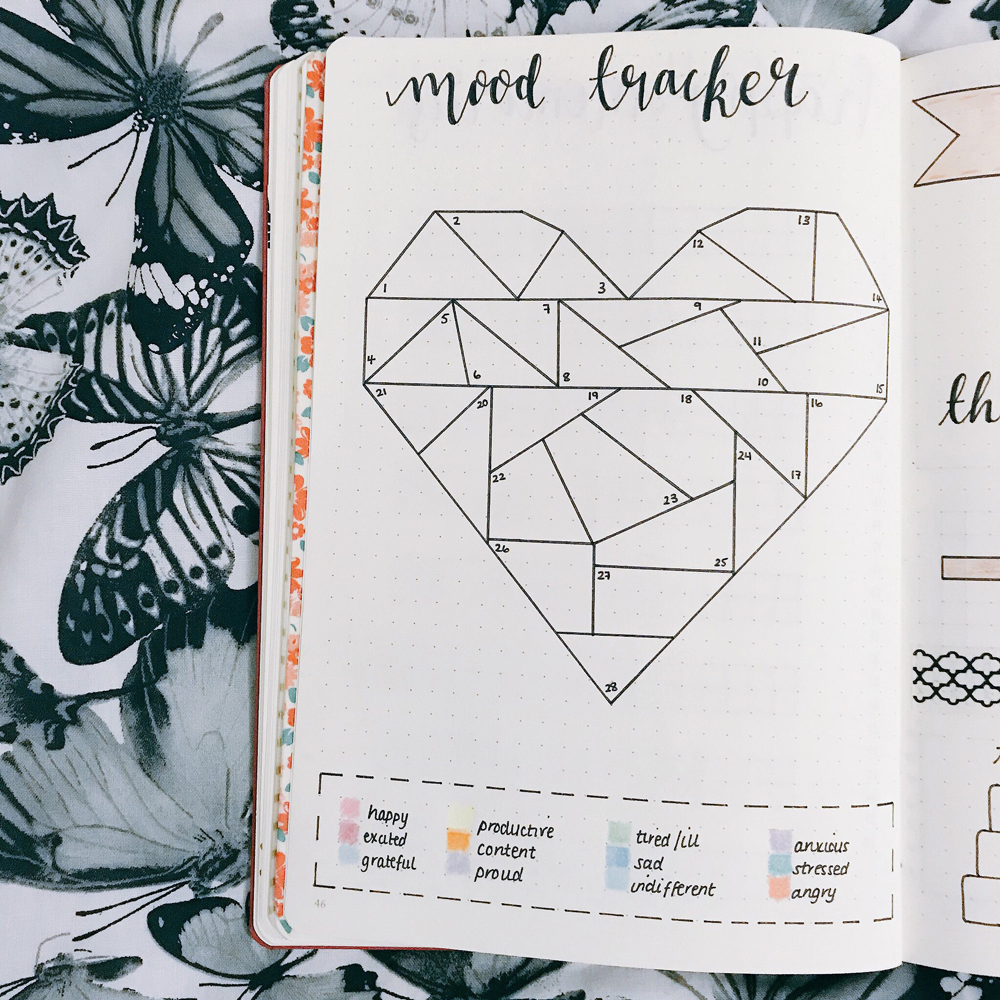 mood tracker
2
13
12
1
3
14
5
7
9
4
11
6
8
10
15
21
20
19
18
16
22
23
24
17
26
27
25
28
happy
excited
grateful
productive
content
proud
tired/ill
sad
indifferent
anxious
stressed
angry
46
th